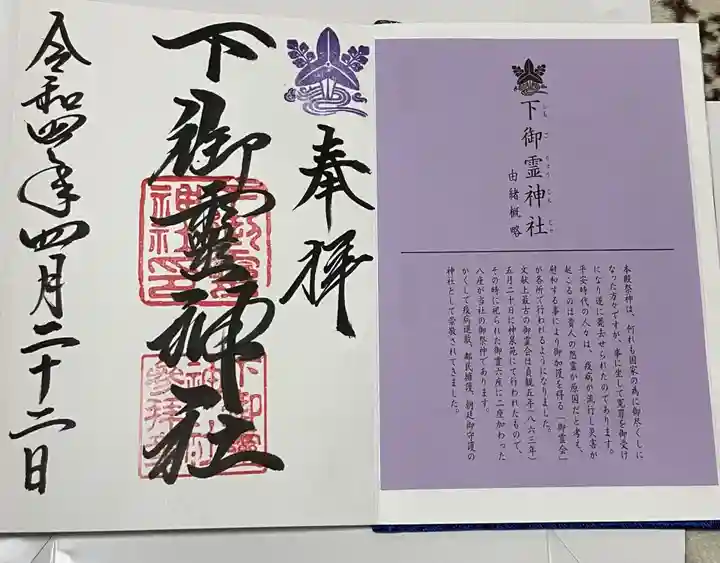 下御霊神社
しもごりょうじんじゃ
由緒概略
本殿祭神は、何れも国家の為に御尽くしに
なった方々ですが、事に坐して冤罪を御受け
になり遂に薨去せられたのであります。
平安時代の人々は、疫病が流行し災害が
起こるのは貴人の怨霊が原因だと考え、
慰和する事により御加護を得る「御霊会」
が各所で行われるようになりました。
文献上最古の御霊会は貞観五年(八六三年)
五月二十日に神泉苑にて行われたもので、
その時に祀られた御霊六座に二座加わった
八座が当社の御祭神であります。
かくして疫病退散、郷民擁護、朝廷御守護の
神社として崇敬されてきました。
奉拝
下御靈神社
令和四年四月二十二日